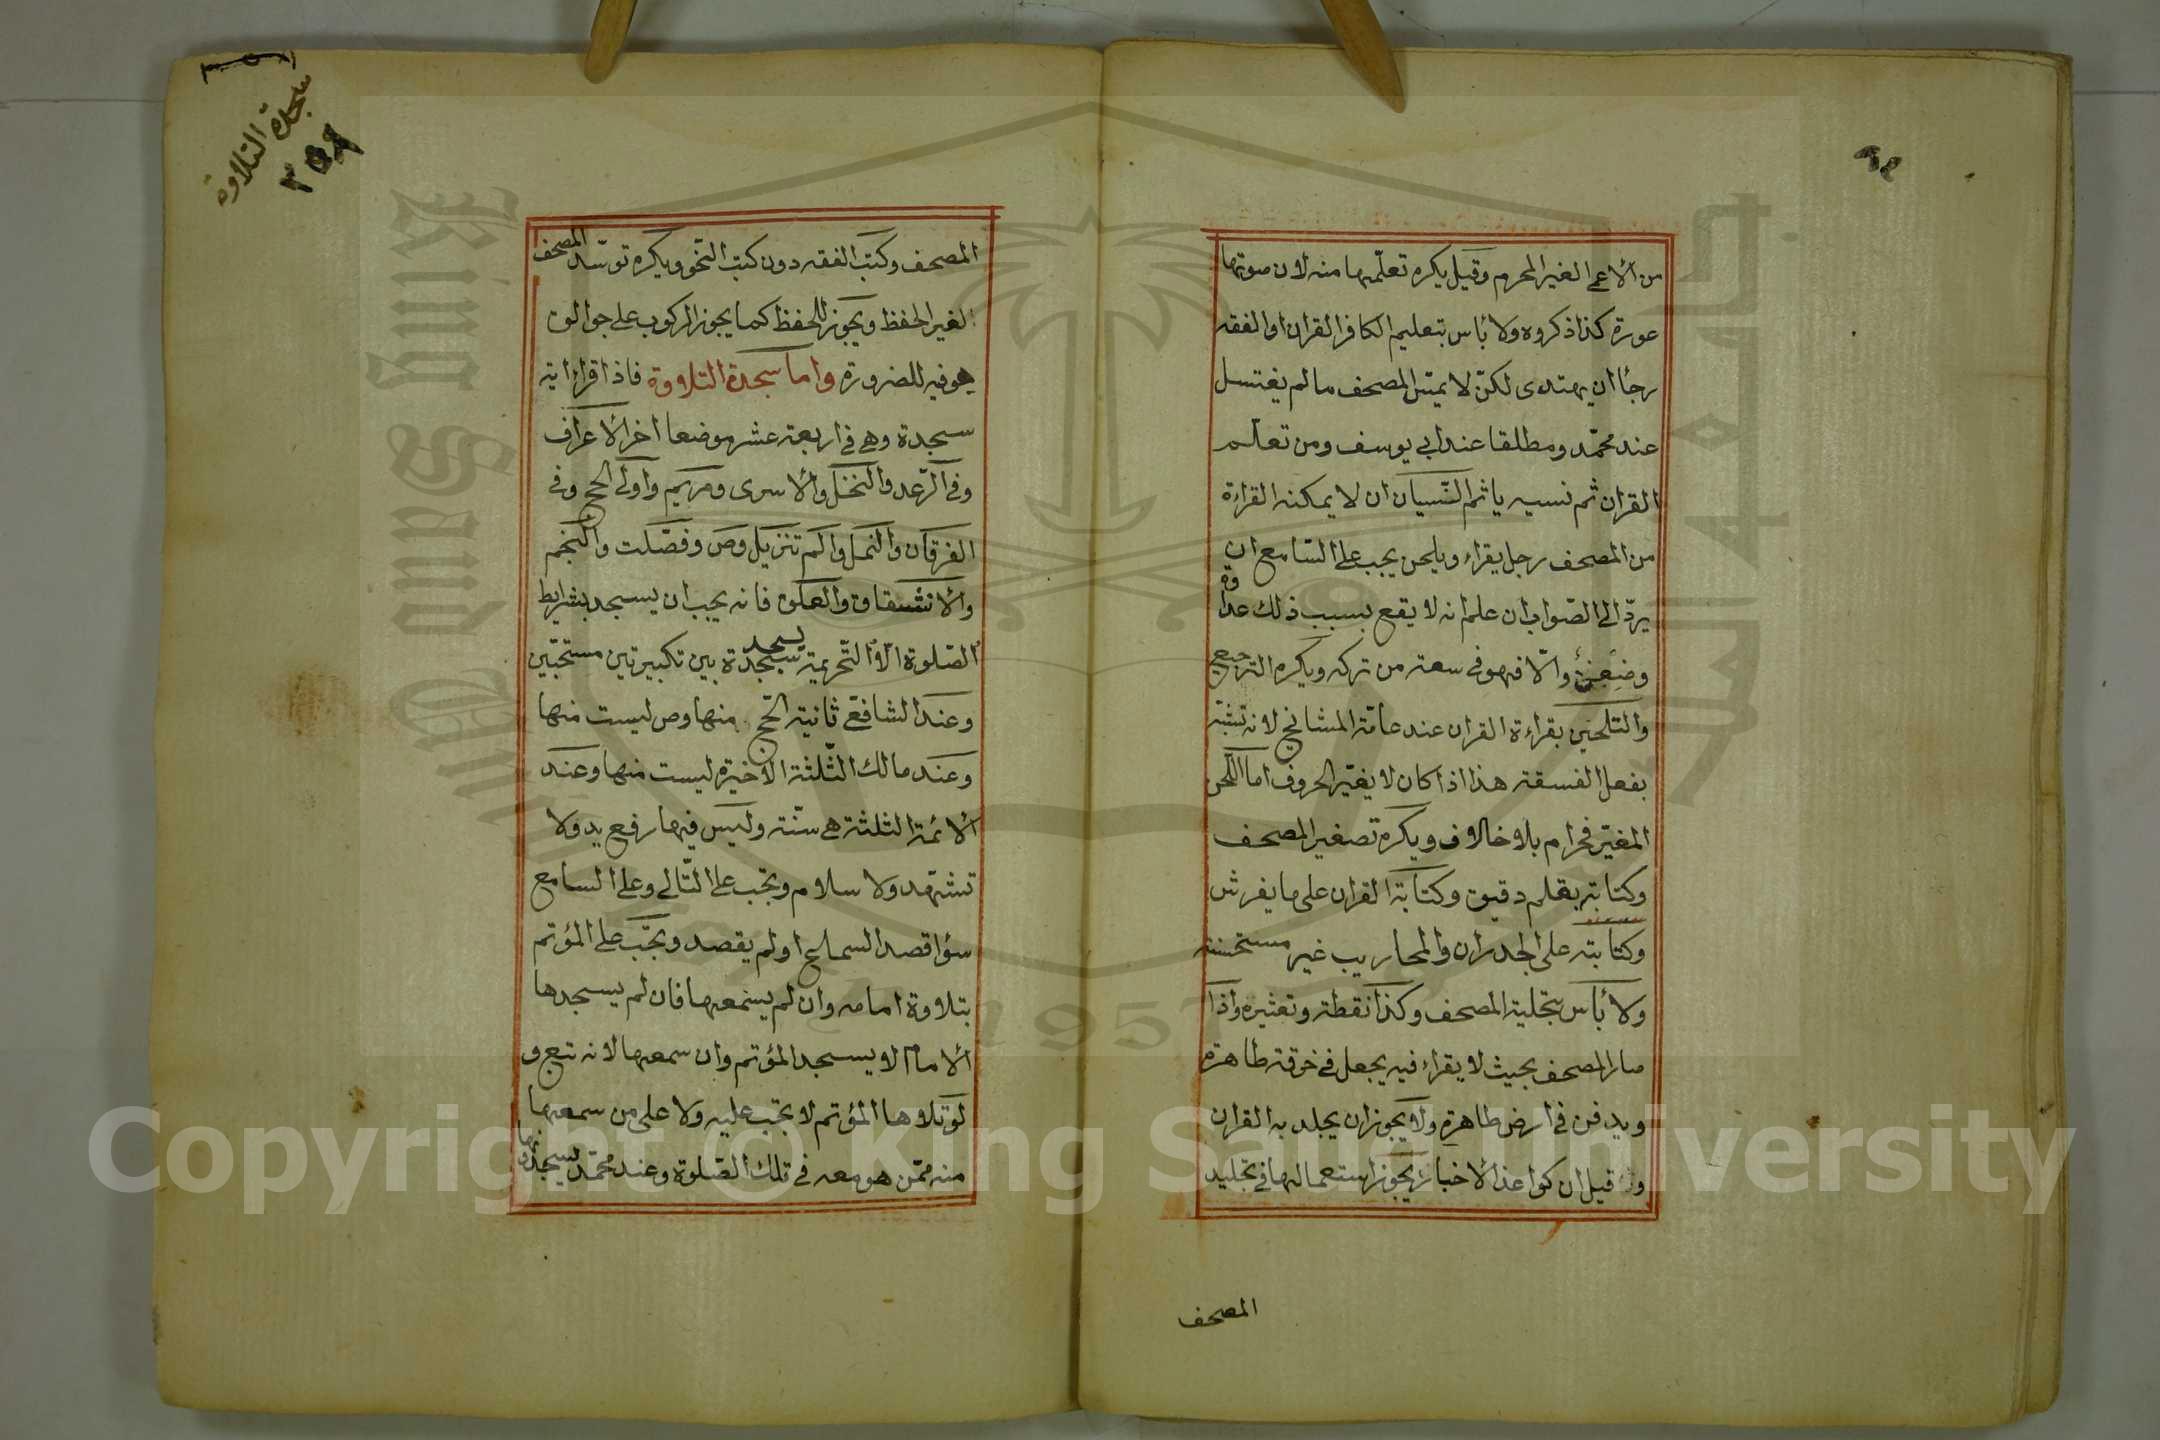 من الاعمى الغير المحرم وقيل يكره تعلّمها منه لان صوتها
عورة كذا ذكروه ولا بأس بتعليم الكافر القران او الفقه
رجأ ان يهتدى لكنّ لا يمسّ المصحف ما لم يغتسل
عند محمّد ومطلقا عند ابى يوسف ومن تعلّم
القران ثم نسيه ياثم النّسيان ان لا يمكنه القراءة
من المصحف رجل يقراء ويلحن يجب على السّامع ان
يردّ الى الصّواب ان علم انه لا يقع بسبب ذلك عداوة
وضغن والّا فهو فى سعة من تركه ويكره الترجيع
والتلحين بقراءة القران عند عامّة المشايخ لانه تشبّه
بفعل الفسقة هذا اذا كان لا يغيّر الحروف اما اللّحن
المغيّر فحرام بلا خلاف ويكره تصغير المصحف
وكتابته بقلم دقيق وكتابة القران على ما يفرش
وكتابته على الجدران والمحاريب غير مستحسنة
ولا بأس بتحلية المصحف وكذا نقطة وتعشيره واذا
صار المصحف بحيث لا يقراء فيه يجعل فى خرقة طاهرة
ويدفن فى ارض طاهرة ولا يجوز ان يجلد به القران
قيل ان كواغذ الاخبار يجوز استعمالها فى تجليد
المصحف
سجدة التلاوة
٢٥٩
المصحف وكتب الفقه دون كتب النّحو ويكره توسّد المصحف
لغير الحفظ ويجوز للحفظ كما يجوز الركوب على جوالق
هو فيه للضرورة واما سجدة التلاوة فاذا قراء اية
سجدة وهى فى اربعة عشر موضعا اخر الاعراف
وفى الرّعد والنحل والاسرى ومريم واولى الحج وفى
الفرقان والنمل والم تنزيل وص وفصّلت والنجم
والانشقاق والعلق فانه يجب ان يسجد بشرايط
الصّلوة الّا التّحريمة يسجد سجدة بين تكبيرتين مستحبّتين
وعند الشافعى ثانية الحّج منها وص ليست منها
وعند مالك الثّلثة الاخيرة ليست منها وعند
الائمة الثلثة هى سنّة وليس فيها رفع يد ولا
تشهّد ولا سلام وتجب على التّالى وعلى السامع
سؤا قصد السماع او لم يقصد وتجب على المؤتم
بتلاوة امامه وان لم يسمعها فان لم يسجدها
الامام لا يسجد المؤتم وان سمعها لانه تبع و
لو تلاها المؤتم لا تجب عليه ولا على من سمعها
منه ممّن هو معه فى تلك الصّلوة وعند محمّد يسجدونها
King Saud University
1957
Copyright © King Saud University